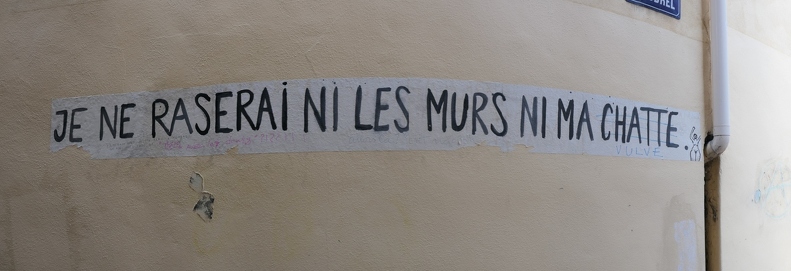 JE NE RASERAi NI LES MURS NI MA CHATTE.
VULVE